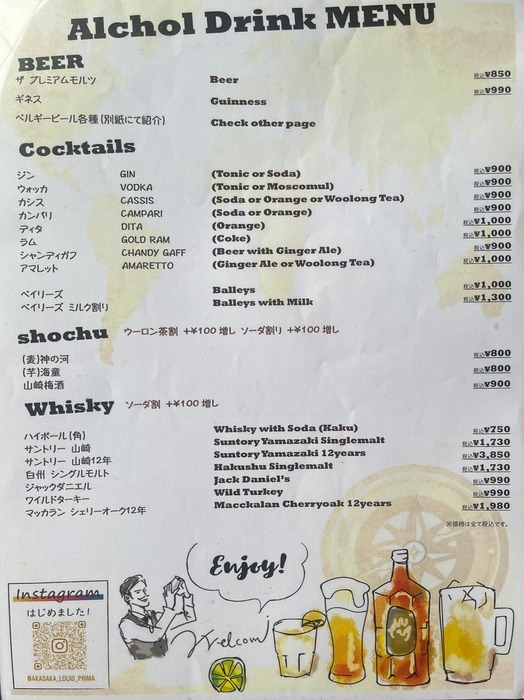 Alchol Drink MENU
BEER
ザ プレミアムモルツ Beer 税込¥850
ギネス Guinness 税込¥990
ベルギービール各種(別紙にて紹介) Check other page
Cocktails
ジン GIN (Tonic or Soda) 税込¥900
ウォッカ VODKA (Tonic or Moscomul) 税込¥900
カシス CASSIS (Soda or Orange or Woolong Tea) 税込¥900
カンパリ CAMPARI (Soda or Orange) 税込¥900
ディタ DITA (Orange) 税込¥1,000
ラム GOLD RAM (Coke) 税込¥1,000
シャンディガフ CHANDY GAFF (Beer with Ginger Ale) 税込¥900
アマレット AMARETTO (Ginger Ale or Woolong Tea) 税込¥1,000
ベイリーズ Balleys 税込¥1,000
ベイリーズ ミルク割り Balleys with Milk 税込¥1,300
shochu ウーロン茶割 +¥100 増し ソーダ割り +¥100 増し
(麦)神の河 税込¥800
(芋)海童 税込¥800
山崎梅酒 税込¥900
Whisky ソーダ割 +¥100 増し
ハイボール(角) Whisky with Soda (Kaku) 税込¥750
サントリー 山崎 Suntory Yamazaki Singlemalt 税込¥1,730
サントリー 山崎12年 Suntory Yamazaki 12years 税込¥3,850
白州 シングルモルト Hakushu Singlemalt 税込¥1,730
ジャックダニエル Jack Daniel's 税込¥990
ワイルドターキー Wild Turkey 税込¥990
マッカラン シェリーオーク12年 Macckalan Cherryoak 12years 税込¥1,980
※価格は全て税込です。
Enjoy!
Welcom
Instagram
はじめました!
@AKASAKA_LOUIS_PRIMA